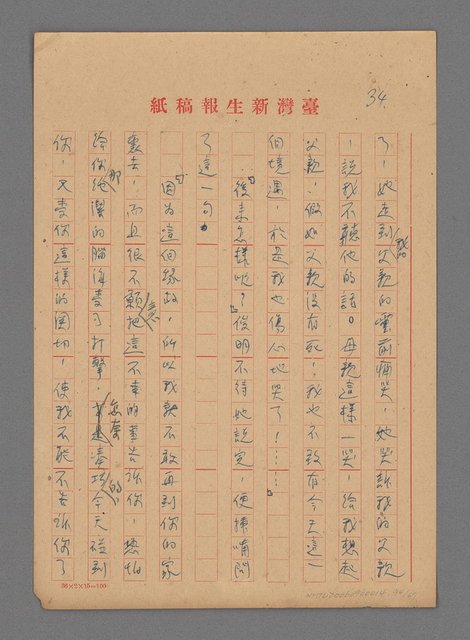 34
臺灣新生報稿紙
了，她走到我的父親的靈前痛哭，她哭訴我的父親
，說我不聽他的話。母親這樣一哭，給我想起
父親，假如父親沒有死，我也不致有今天這一
個境遇，於是我也傷心地哭了！……」
「後來怎樣呢？」俊明不待她說完，便接嘴問
了這一句。
「因為這個緣故，所以我就不敢再到你的家
裏去，而且很不願意把這不幸的事告訴你，恐怕
給你那純潔的腦海受了打擊，怎奈湊巧的今天碰到
你，又受你這樣的關切，使我不能不告訴你了
36×2×15=100